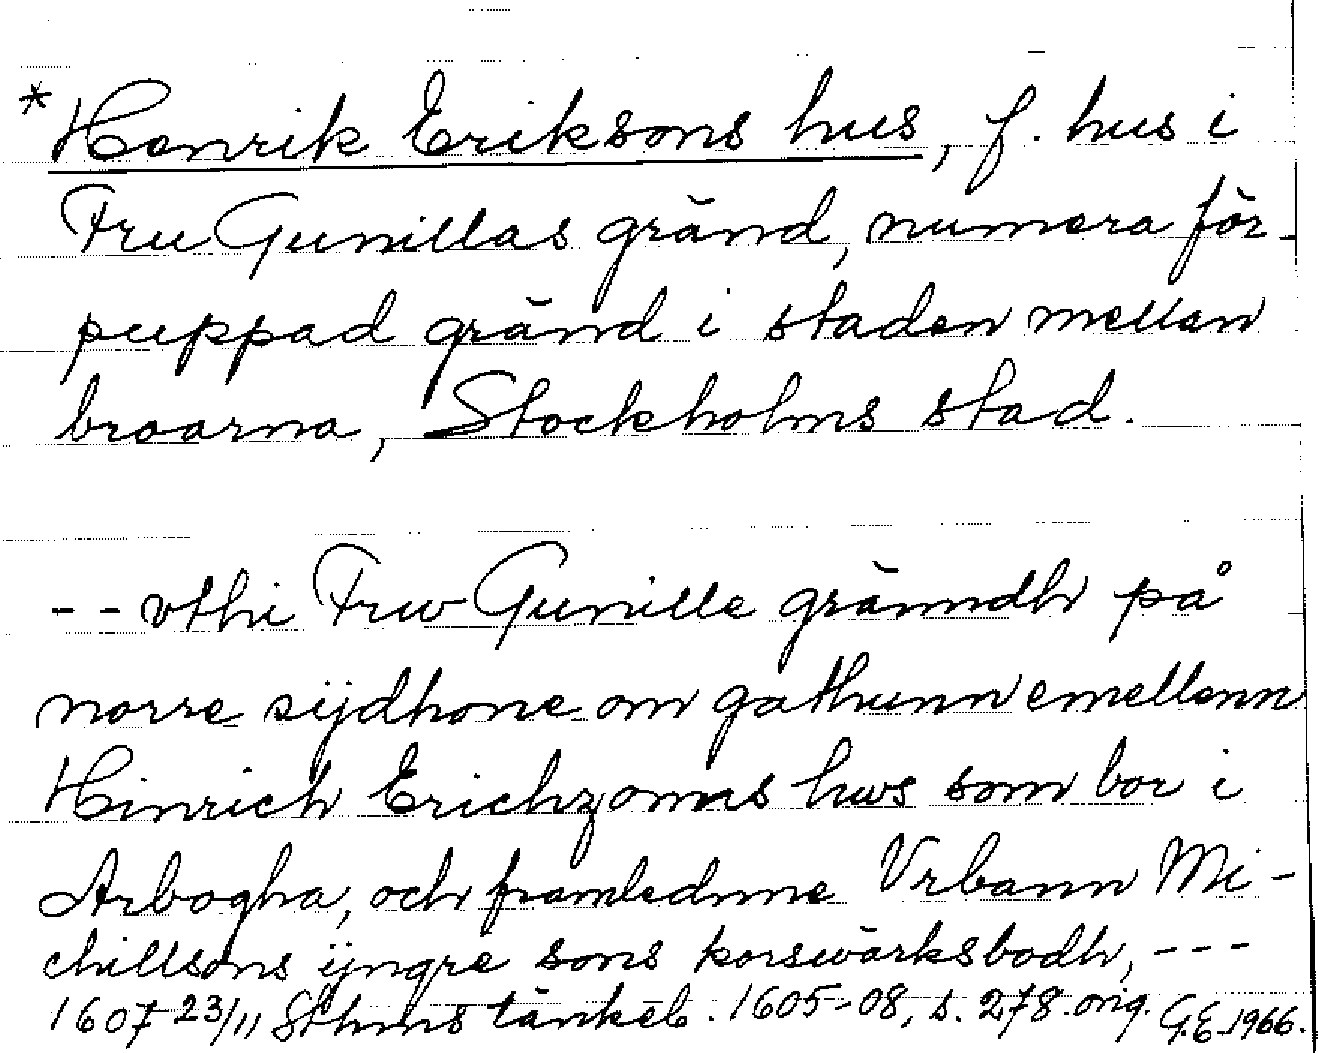 * Henrik Eriksons hus, f. hus i
Fru Gunillas gränd, numera för-
puppad gränd i staden mellan
broarna, Stockholms stad.
-- vthi Frw Gunille gränndh på
norre sijdhone om gathunn emellonn
Hinrich Erichzonns hws som bor i
Arbogha, och framlednne Vrbann Mi-
chillsons ijngre sons korswärksbodh, ---
1607 23/11 Sthms tänkeb. 1605-08, s. 278. orig. G.E. 1966.